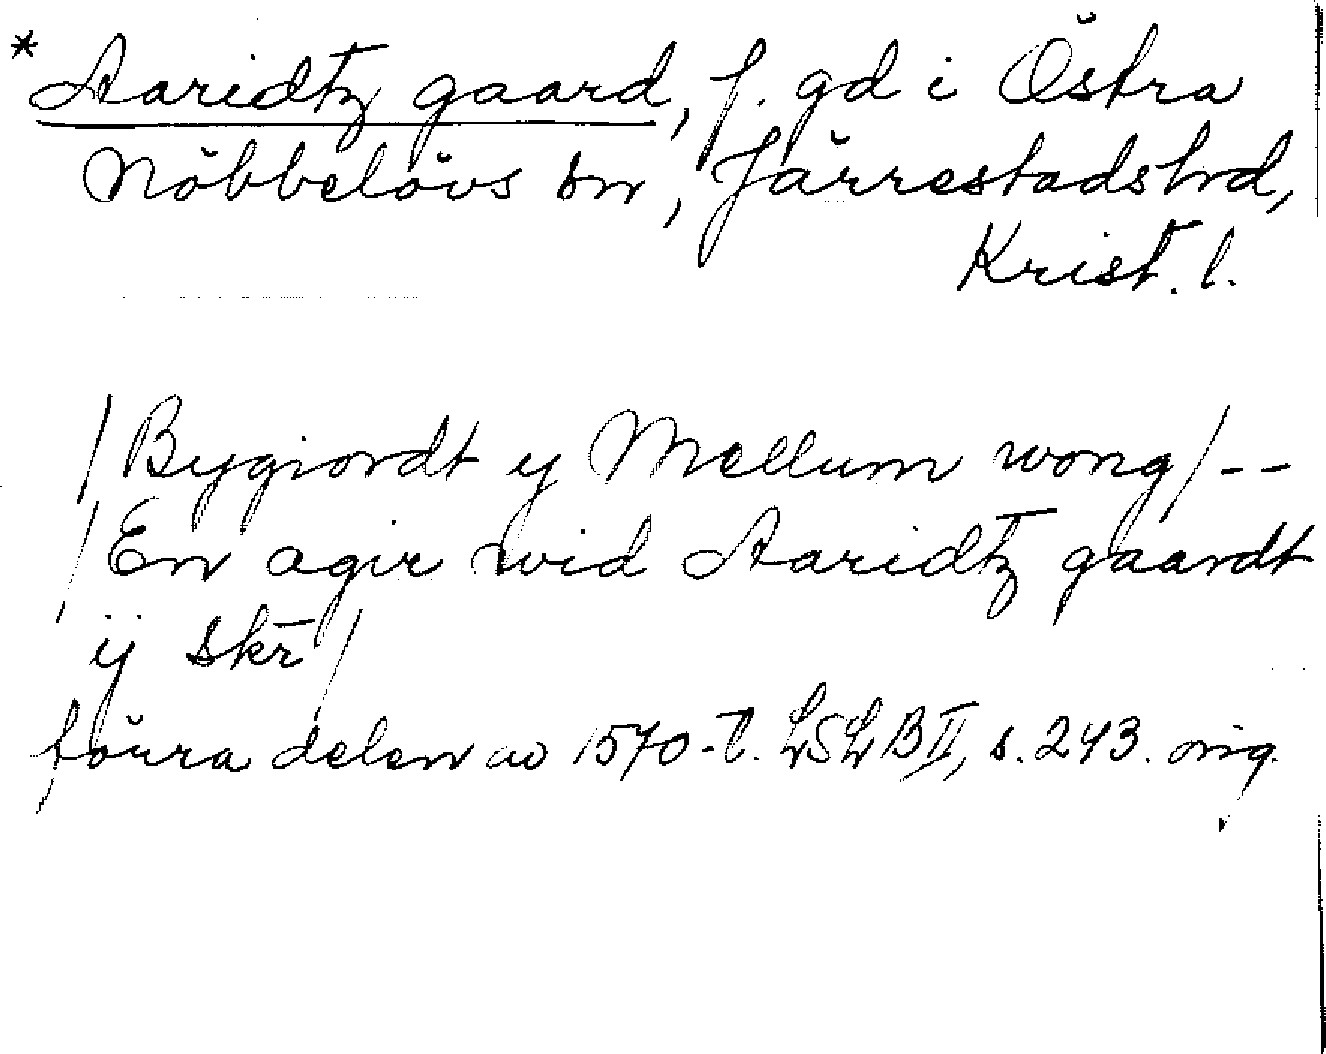 * Aaridtz gaard, f. gd i Östra
Nöbbelövs sn, Järrestads hd,
Krist. l.
/Bygiordt y Mellum wong/--
/En agir wid Aaridtz gaardt
ij skr̄/
förra delen av 1570-t. LSLB II, s. 243. orig.